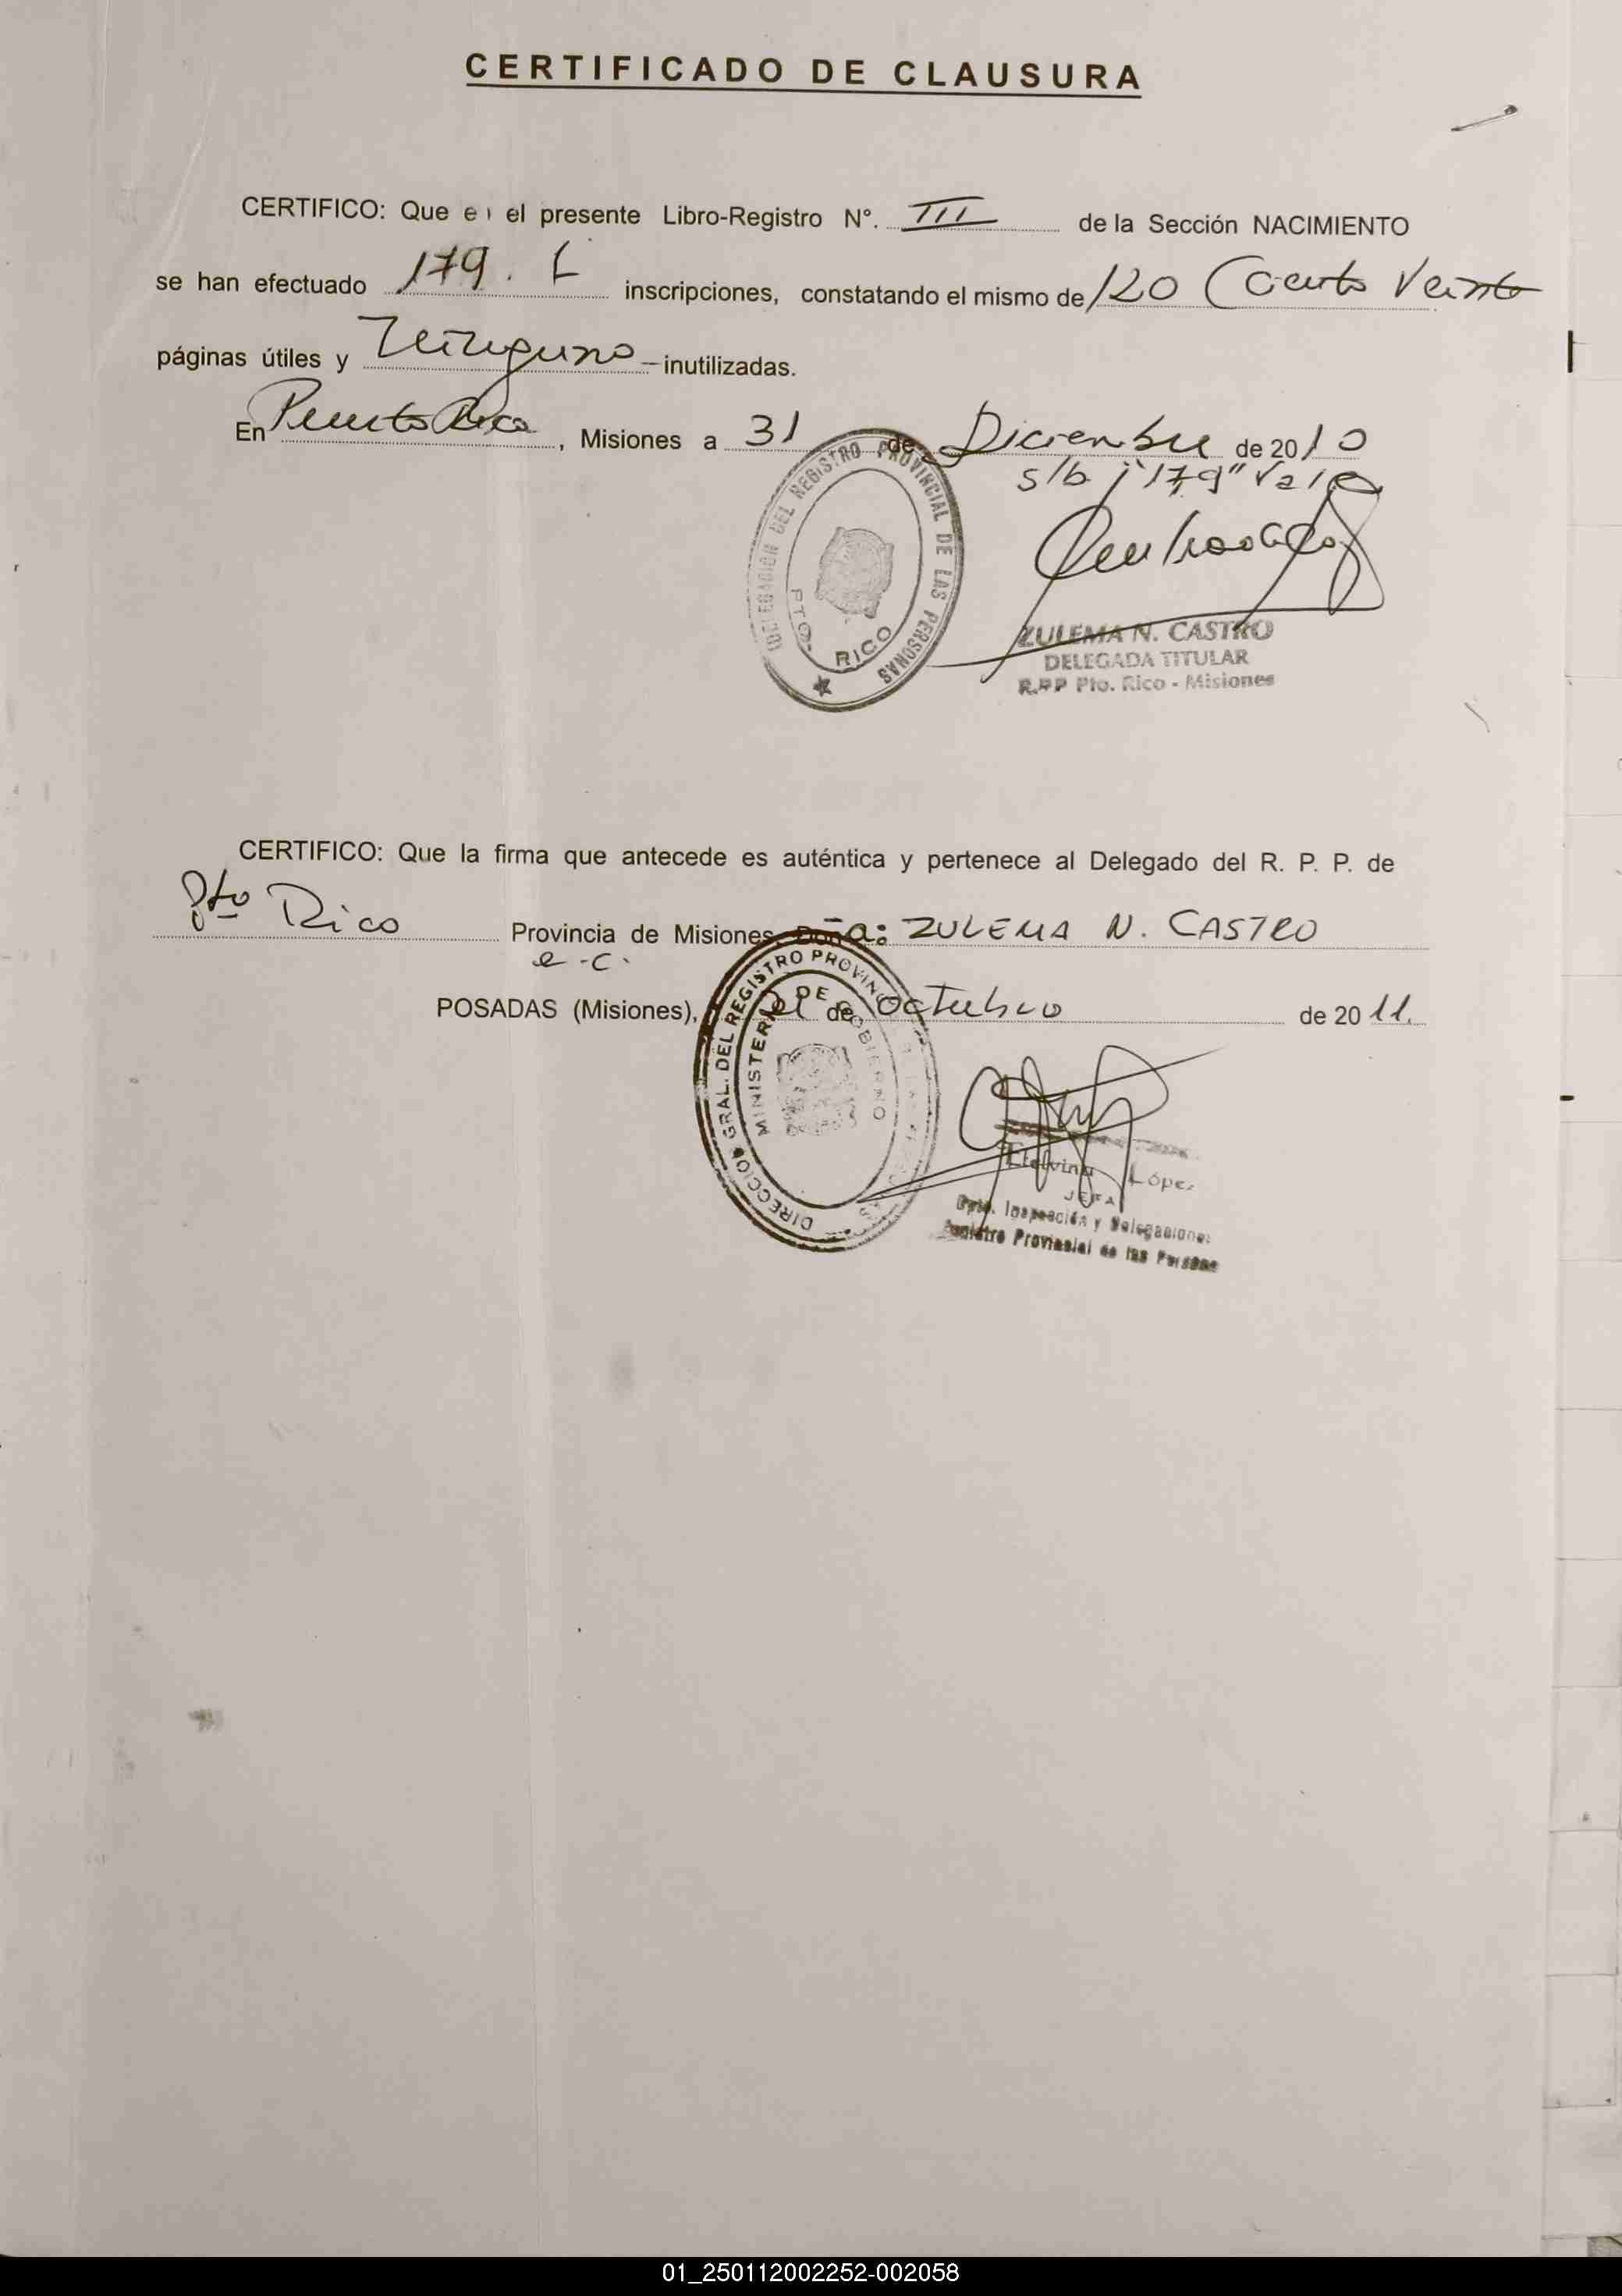 CERTIFICADO DE CLAUSURA
CERTIFICO: Que e el presente Libro-Registro Nº. III de la Sección NACIMIENTO
se han efectuado 179. inscripciones, constatando el mismo de 120 (Ciento Veinte
páginas útiles y Ninguno inutilizadas.
En Puerto Rico, Misiones a 31 de Diciembre de 2010
s/b "179" Vale
DELEGACION DEL REGISTRO PROVINCIAL DE LAS PERSONAS
PTO. RICO
ZULEMA N. CASTRO
DELEGADA TITULAR
R.P.P Pto. Rico - Misiones
CERTIFICO: Que la firma que antecede es auténtica y pertenece al Delegado del R. P. P. de
Pto Rico Provincia de Misiones, Doña: ZULEMA N. CASTRO
e.c.
POSADAS (Misiones), 21 de octubre de 2011.
DIRECCION GRAL. DEL REGISTRO PROVINC
MINISTERIO DE GOBIERNO
Etelvina López
JEFA
Dpto. Inspección y Delegaciones
Registro Provincial de las Personas
01_250112002252-002058